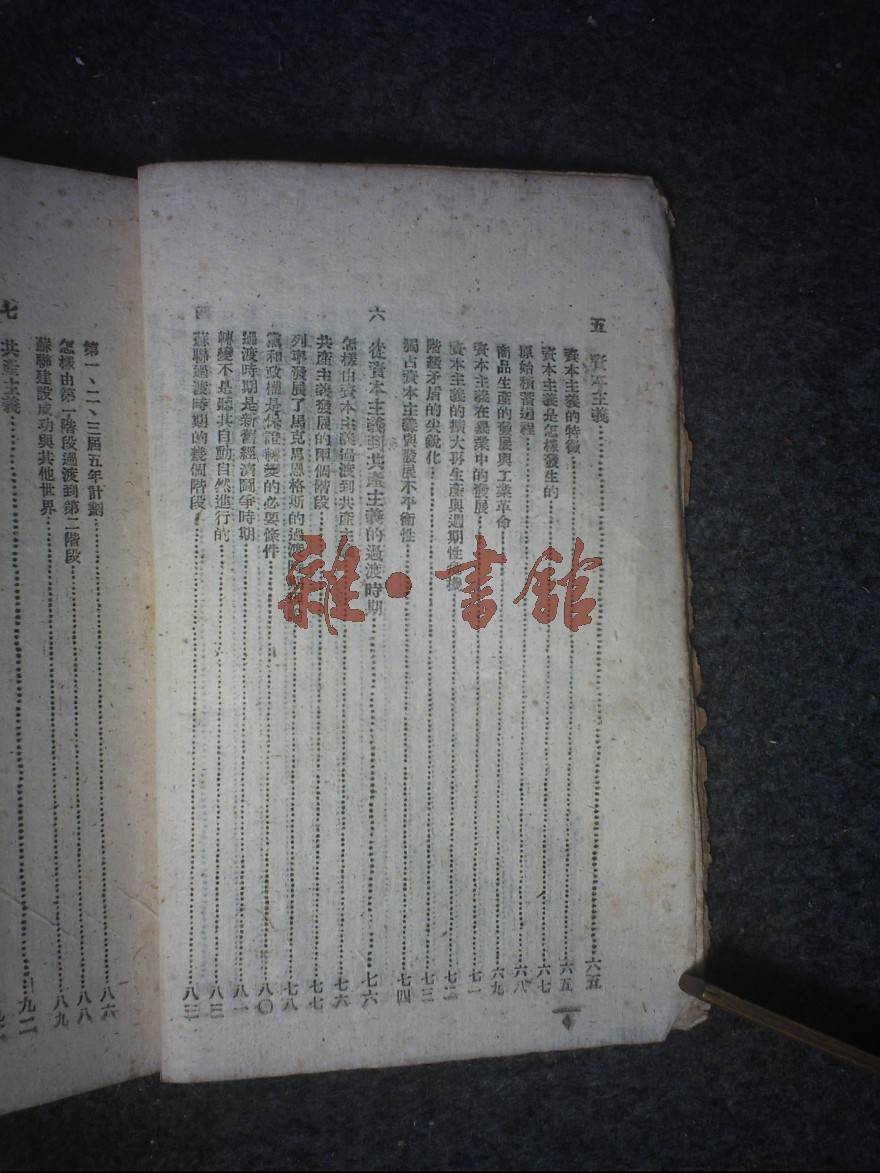 五 資本主義……六五
資本主義的特徵……六五
資本主義是怎樣發生的……六七
原始積蓄過程……六八
商品生產的發展與工業革命……六九
資本主義在農業中的發展……七一
資本主義的擴大再生產與週期性……七二
階級矛盾的尖銳化……七三
獨占資本主義與發展不平衡性……七四
六 從資本主義到共產主義的過渡時期……七六
怎樣由資本主義過渡到共產主……七六
共產主義發展的兩個階段……七七
列寧發展了馬克思恩格斯的過渡……七八
黨和政權是保證轉變的必要條件……八〇
過渡時期是新舊經濟鬥爭時期……八一
轉變不是聽其自動自然進行的……八三
蘇聯過渡時期的幾個階段……八三
四
第一、二、三屆五年計劃……八六
怎樣由第一階段過渡到第二階段……八八
蘇聯建設成功與其他世界……八九
七 共產主義……九二
雜·書館